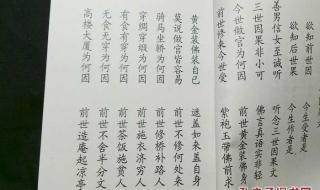 欲知前世因 今生受者是
欲知后世果 今生作者是
善男信女至诚听 听念三世因果文
三世因果非小可 佛言真语实非轻
今世做官为何因 前世黄金装佛身
前世修来今世受 紫袍玉带佛前求
黄金装佛装自己 遮盖如来盖自身
莫说做官皆容易 前世不修何处来
骑马坐轿为何因 前世修桥补路人
穿绸穿缎为何因 前世施衣济穷人
有食有穿为何因 前世茶饭施贫人
无食无穿为何因 前世不舍半分文
高楼大厦为何因 前世造庵起凉亭